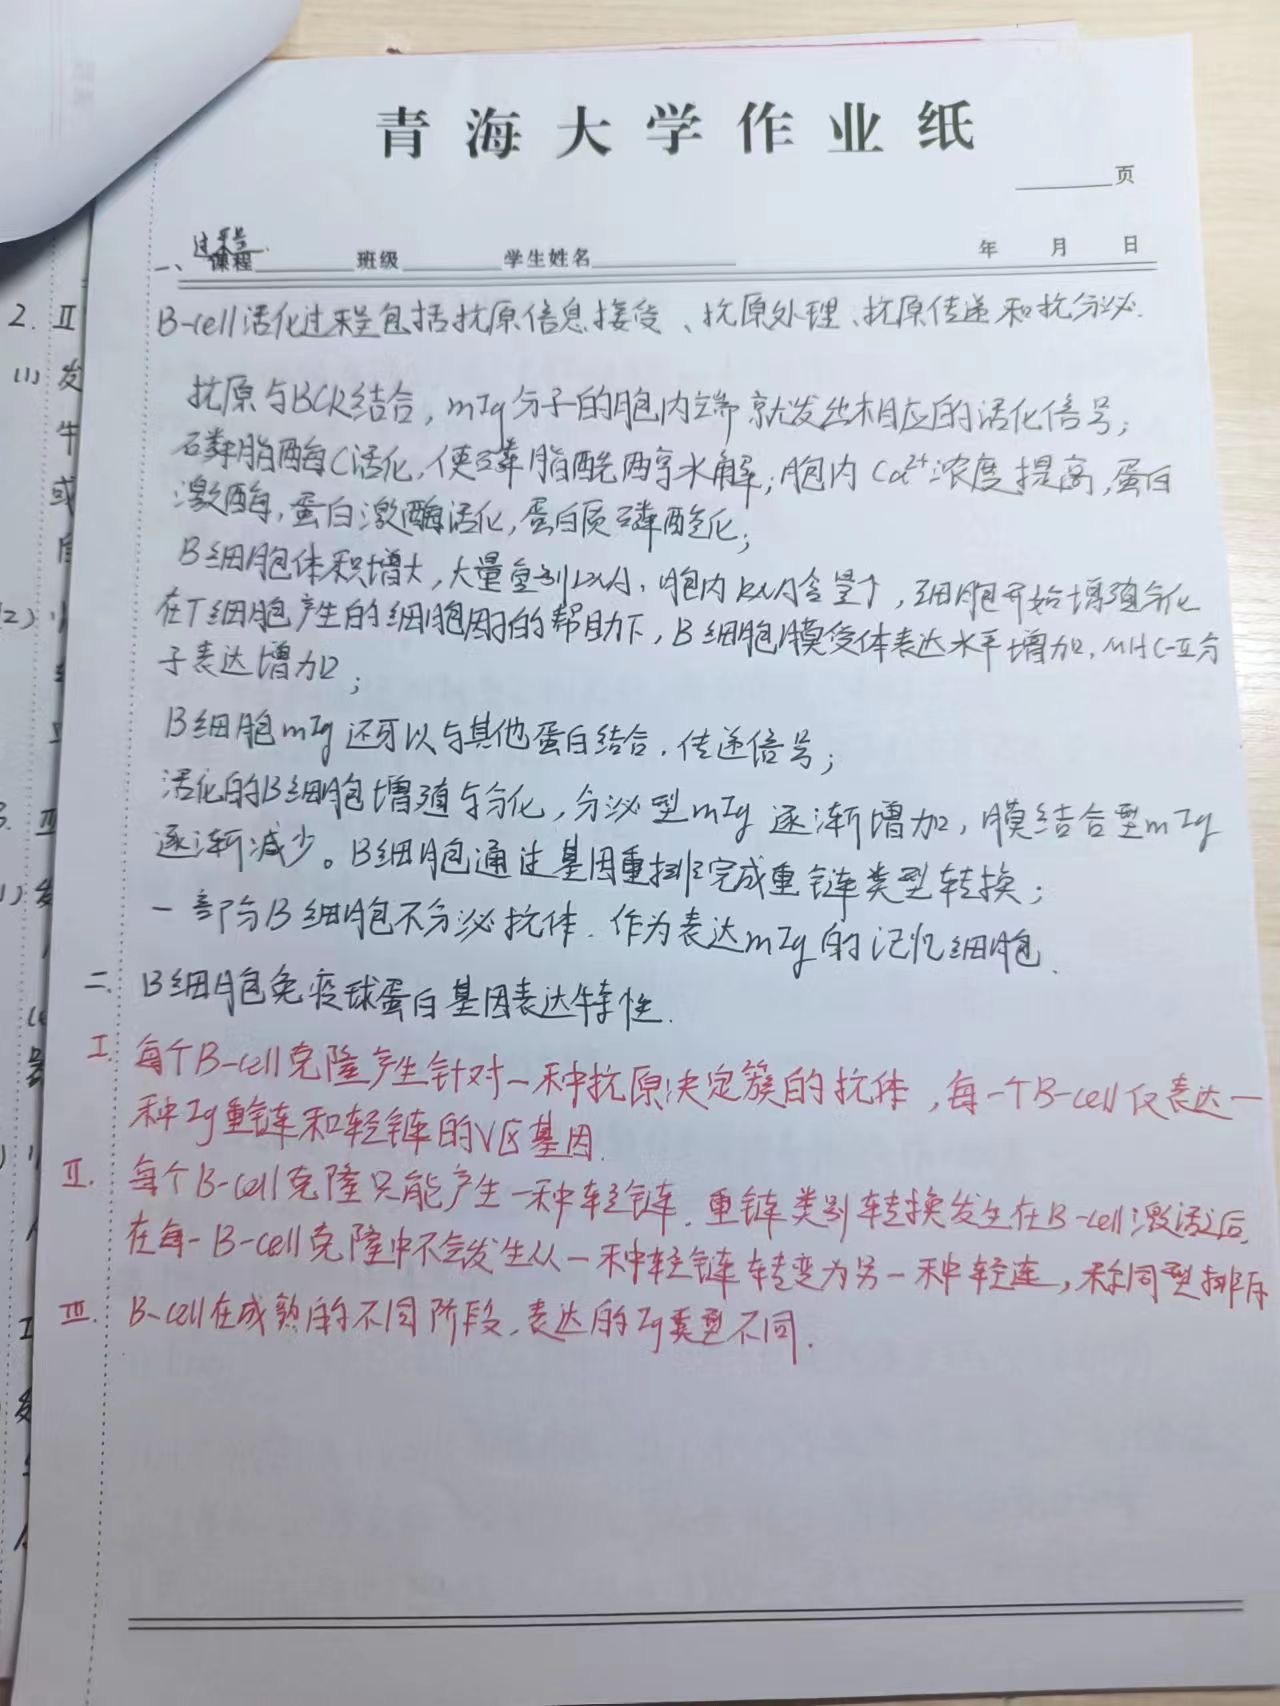 青海大学作业纸
页
过程
一、课程 班级 学生姓名 年 月 日
B-cell活化过程包括抗原信息接受、抗原处理、抗原传递和抗分泌.
抗原与BCR结合，mIg分子的胞内端就发出相应的活化信号；
磷脂酶C活化，使磷脂酰肌醇水解；胞内Ca²⁺浓度提高，蛋白
激酶，蛋白激酶活化，蛋白质磷酸化；
B细胞体积增大，大量 ，胞内RNA含量↑，细胞开始增殖分化
在T细胞产生的细胞因的帮助下，B细胞膜受体表达水平增加，MHC-Ⅱ分
子表达增加；
B细胞mIg还可以与其他蛋白结合，传递信号；
活化的B细胞增殖与分化，分泌型mIg逐渐增加，膜结合型mIg
逐渐减少。B细胞通过基因重排完成重链类型转换；
一部分B细胞不分泌抗体．作为表达mIg的记忆细胞．
二．B细胞免疫球蛋白基因表达特性．
Ⅰ．每个B-cell克隆产生针对一种抗原决定簇的抗体，每一个B-cell仅表达一
种Ig重链和轻链的V区基因．
Ⅱ．每个B-cell克隆只能产生一种轻链．重链类别转换发生在B-cell激活之后，
在每一B-cell克隆中不会发生从一种轻链转变为另一种轻连，称同型排斥
Ⅲ．B-cell在成熟的不同阶段，表达的Ig类型不同．
2. Ⅱ
(1) 发
牛
或